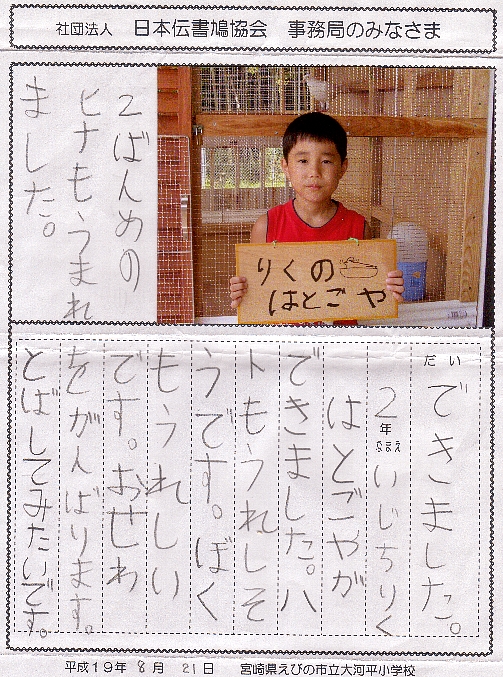 社団法人 日本伝書鳩協会 事務局のみなさま
2ばんめの
ヒナもうまれ
ました。
りくの
はとごや
だい
できました。
2年 なまえ いじちりく
はとごやが
できました。ハ
トもうれしそ
うです。ぼく
もうれしい
です。おせわ
をがんばります。
とばしてみたいです。
平成19年 8月 21日 宮崎県えびの市立大河平小学校